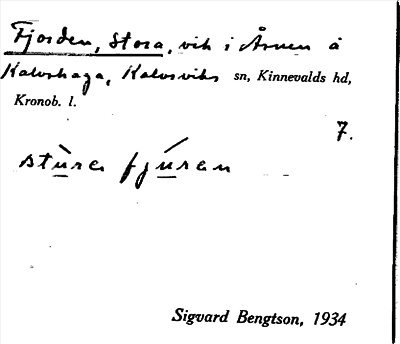 Fjorden, Stora, vik i Åsnen å
Kalvshaga, Kalvsviks sn, Kinnevalds hd,
Kronob. l.
7.
stùra fjúran
Sigvard Bengtson, 1934